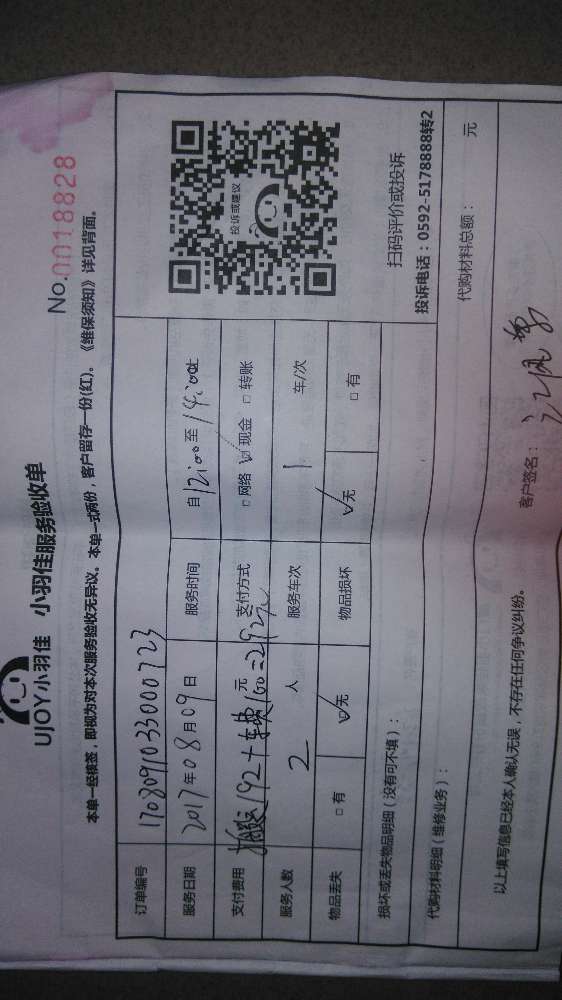 UJOY小羽佳 小羽佳服务验收单
No.0018828
本单一经核签，即视为对本次服务验收无异议。本单一式两份，客户留存一份(红)。《维保须知》详见背面。
订单编号 1708091033000723
服务日期 2017年08月09日 服务时间 自12:00至14:00止
支付费用 搬运192+车费100=292元 元 支付方式 □网络 ☑现金 □转账
服务人数 2 人 服务车次 1 车/次
物品丢失 □有 ☑无 物品损坏 ☑无 □有
投诉或建议
扫码评价或投诉
投诉电话：0592-5178888转2
损坏或丢失物品明细（没有可不填）：
代购材料明细（维修业务）： 代购材料总额： 元
以上填写信息已经本人确认无误，不存在任何争议纠纷。
客户签名：